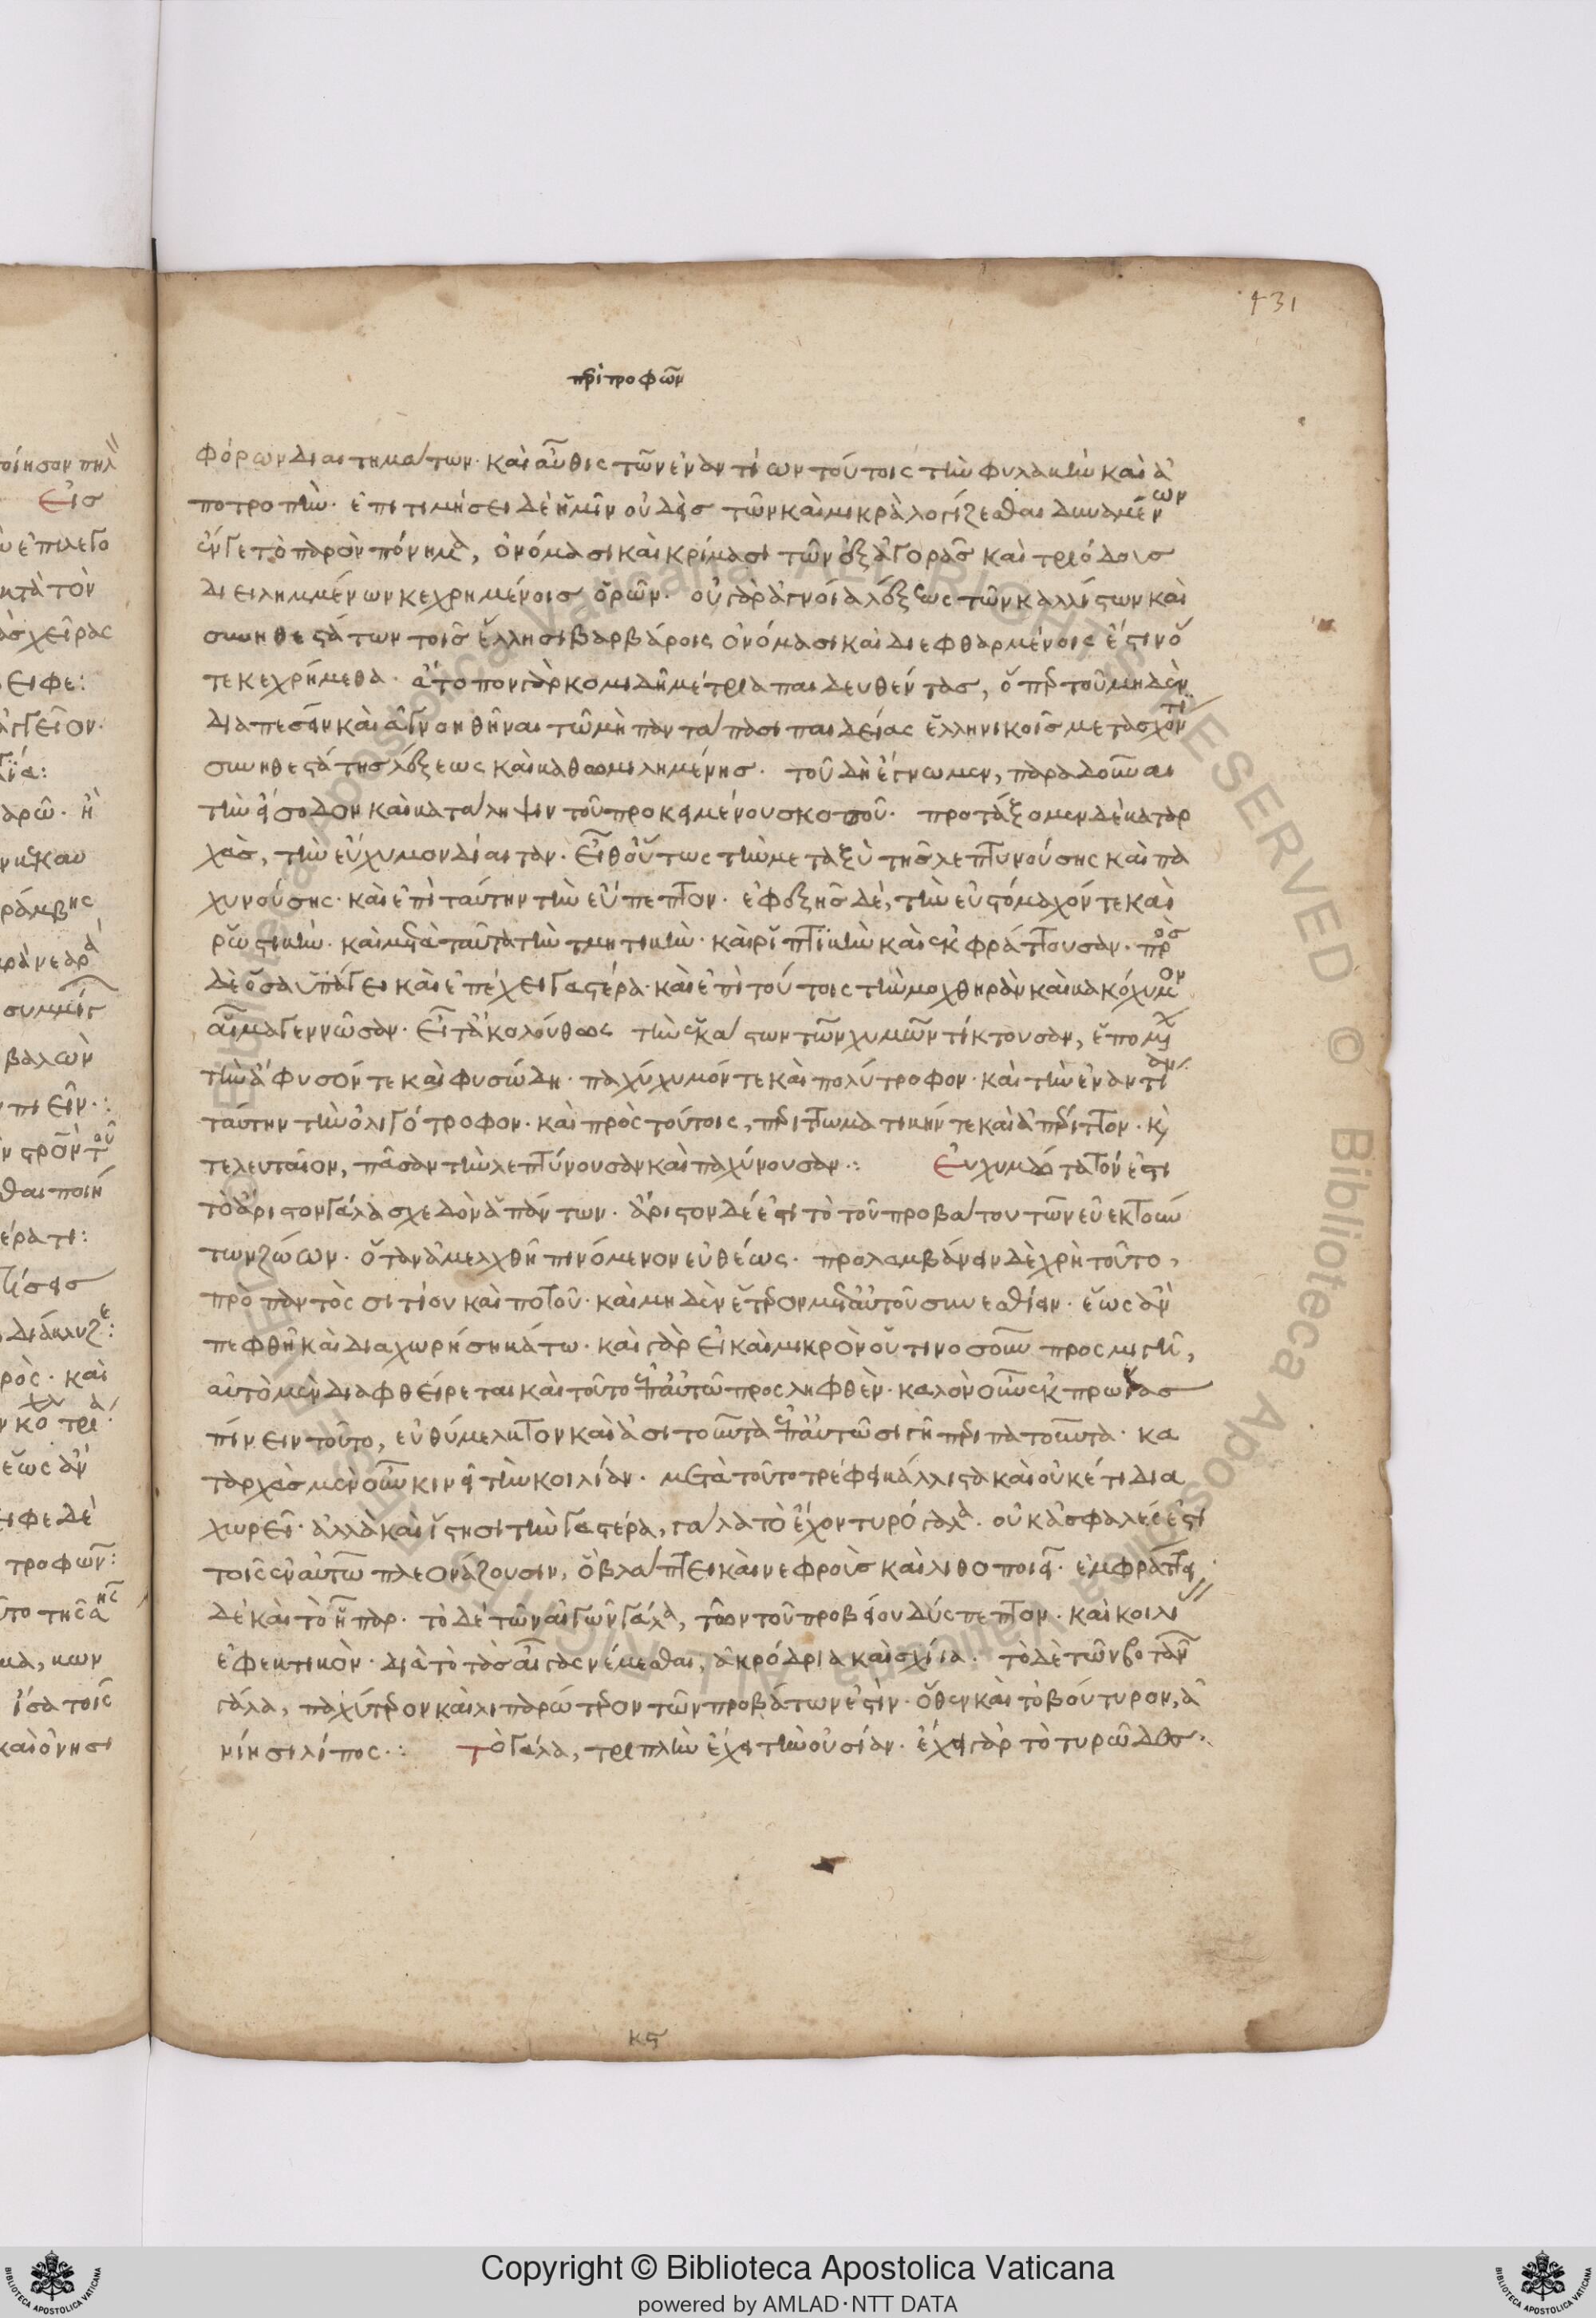 431
περὶ τροφῶν
φόρων διαιτημάτων· καὶ αὖθις τῶν ἐναντίων τούτοις τὴν φυλακὴν καὶ ἀ
ποτροπήν· ἐπιτιμήσει δὲ ἡμῖν οὐδεὶς τῶν καὶ μικρὰ λογίζεσθαι δυναμένων
ἐν γε τὸ παρὸν πόνημα, ὀνόμασι καὶ κρίμασι τῶν ἐξ ἀγορᾶς καὶ τριόδοις
διειλημμένων κεχρημένοις ὁρῶν· οὐ γὰρ ἀγνοίᾳ λέξεως τῶν καλλίστων καὶ
συνηθεστάτων τοῖς ἕλλησι βαρβάροις ὀνόμασι καὶ διεφθαρμένοις ἔστιν οὗ
τε κεχρήμεθα· ἄτοπον γὰρ κομιδῇ μέτρια παιδευθέντας, ὑπὲρ τοῦ μηδὲν
διαπεσεῖν καὶ ἀγνοηθῆναι τῶ μὴ παντάπασι παιδείας ἑλληνικοῖς μετασχόντι
συνηθεστάτης λέξεως καὶ καθωμιλημένης· τοῦ δὴ ἔγνωμεν, παραδοῦναι
τὴν εἴσοδον καὶ κατάληψιν τοῦ προκειμένου σκοποῦ· προτάξομεν δὲ καταρ
χὰς, τὴν εὔχυμον δίαιταν· εἶθ οὕτως τὴν μεταξὺ τῆς λεπτυνούσης καὶ πα
χυνούσης· καὶ ἐπὶ ταύτην τὴν εὔπεπτον· ἐφεξῆς δὲ, τὴν εὐστόμαχόν τε καὶ
ῥωστικὴν· καὶ μετὰ ταῦτα τὴν τμητικὴν· καὶ ῥιπτικὴν καὶ ἐκφράττουσαν· πρὸς
δὲ ὅσα ὑπάγει καὶ ἐπέχει γαστέρα· καὶ ἐπὶ τούτοις τὴν μοχθηρὰν καὶ κακόχυμον
αἷμα γεννῶσαν· εἶτ ἀκολούθως τὴν ἑκάστων τῶν χυμῶν τίκτουσαν, ἑπομένως
τὴν ἄφυσόν τε καὶ φυσώδη· παχύχυμόν τε καὶ πολύτροφον· καὶ τὴν ἐναντίαν
ταύτην τὴν ὀλιγότροφον· καὶ πρὸς τούτοις, περιττωματικήν τε καὶ ἀπέριττον· καὶ
τελευταῖον, πᾶσαν τὴν λεπτύνουσαν καὶ παχύνουσαν·: Εὐχυμώτατόν ἐστι
τὸ ἄριστον γάλα σχεδὸν ἁπάντων· ἄριστον δέ ἐστι τὸ τοῦ προβάτου τῶν εὐεκτούν
των ζώων· ὅταν ἀμελχθῆ πινόμενον εὐθέως· προλαμβάνειν δὲ χρὴ τοῦτο,
πρὸ παντὸς σιτίου καὶ ποτοῦ· καὶ μηδὲν ἕτερον μετ αὐτοῦ συνεσθίειν· ἕως ἂν
πεφθῆ καὶ διαχωρήση κάτω· καὶ γὰρ εἰ καὶ μικρὸν οὗτινοσοῦν προσμιγῆ,
αὐτὸ μὲν διαφθείρεται καὶ τοῦτο ἐπ αὐτῶ προσληφθὲν· καλὸν οὖν ἐκ πρωΐας
πίνειν τοῦτο, εὐθύμελκτον καὶ ἀσιτοῦντα ἐπ αὐτῶ σιγῆ περιπατοῦντα· κα
ταρχὰς μὲν οὖν κινεῖ τὴν κοιλίαν· μετὰ τοῦτο τρέφει κάλλιστα καὶ οὐκέτι δια
χωρεῖ· ἀλλὰ καὶ ἵστησι τὴν γαστέρα, γάλα τὸ ἔχον τυρόγαλα· οὐκ ἀσφαλές ἐστι
τοῖς ἐν αὐτῶ πλεονάζουσιν, ὃ βλάπτει καὶ νεφροὺς καὶ λιθοποιεῖ· ἐμφράττει
δὲ καὶ τὸ ἧπαρ· τὸ δὲ τῶν αἰγῶν γάλα, ἧττον τοῦ προβείου δύσπεπτον· καὶ κοιλίας
ἐφεκτικὸν· διὰ τὸ τὰς αἶγας νέμεσθαι, ἀκρόδρια καὶ σχῖνα· τὸ δὲ τῶν βοτανῶν
γάλα, παχύτερον καὶ λιπαρώτερον τῶν προβάτων ἐστὶν· ὅθεν καὶ τὸ βούτυρον, ἀ
κίνησι λίπος·: Τὸ γάλα, τριπλὴν ἔχει τὴν οὐσίαν· ἔχει γὰρ τὸ τυρῶδες·
κϛ
Copyright © Biblioteca Apostolica Vaticana
powered by AMLAD·NTT DATA